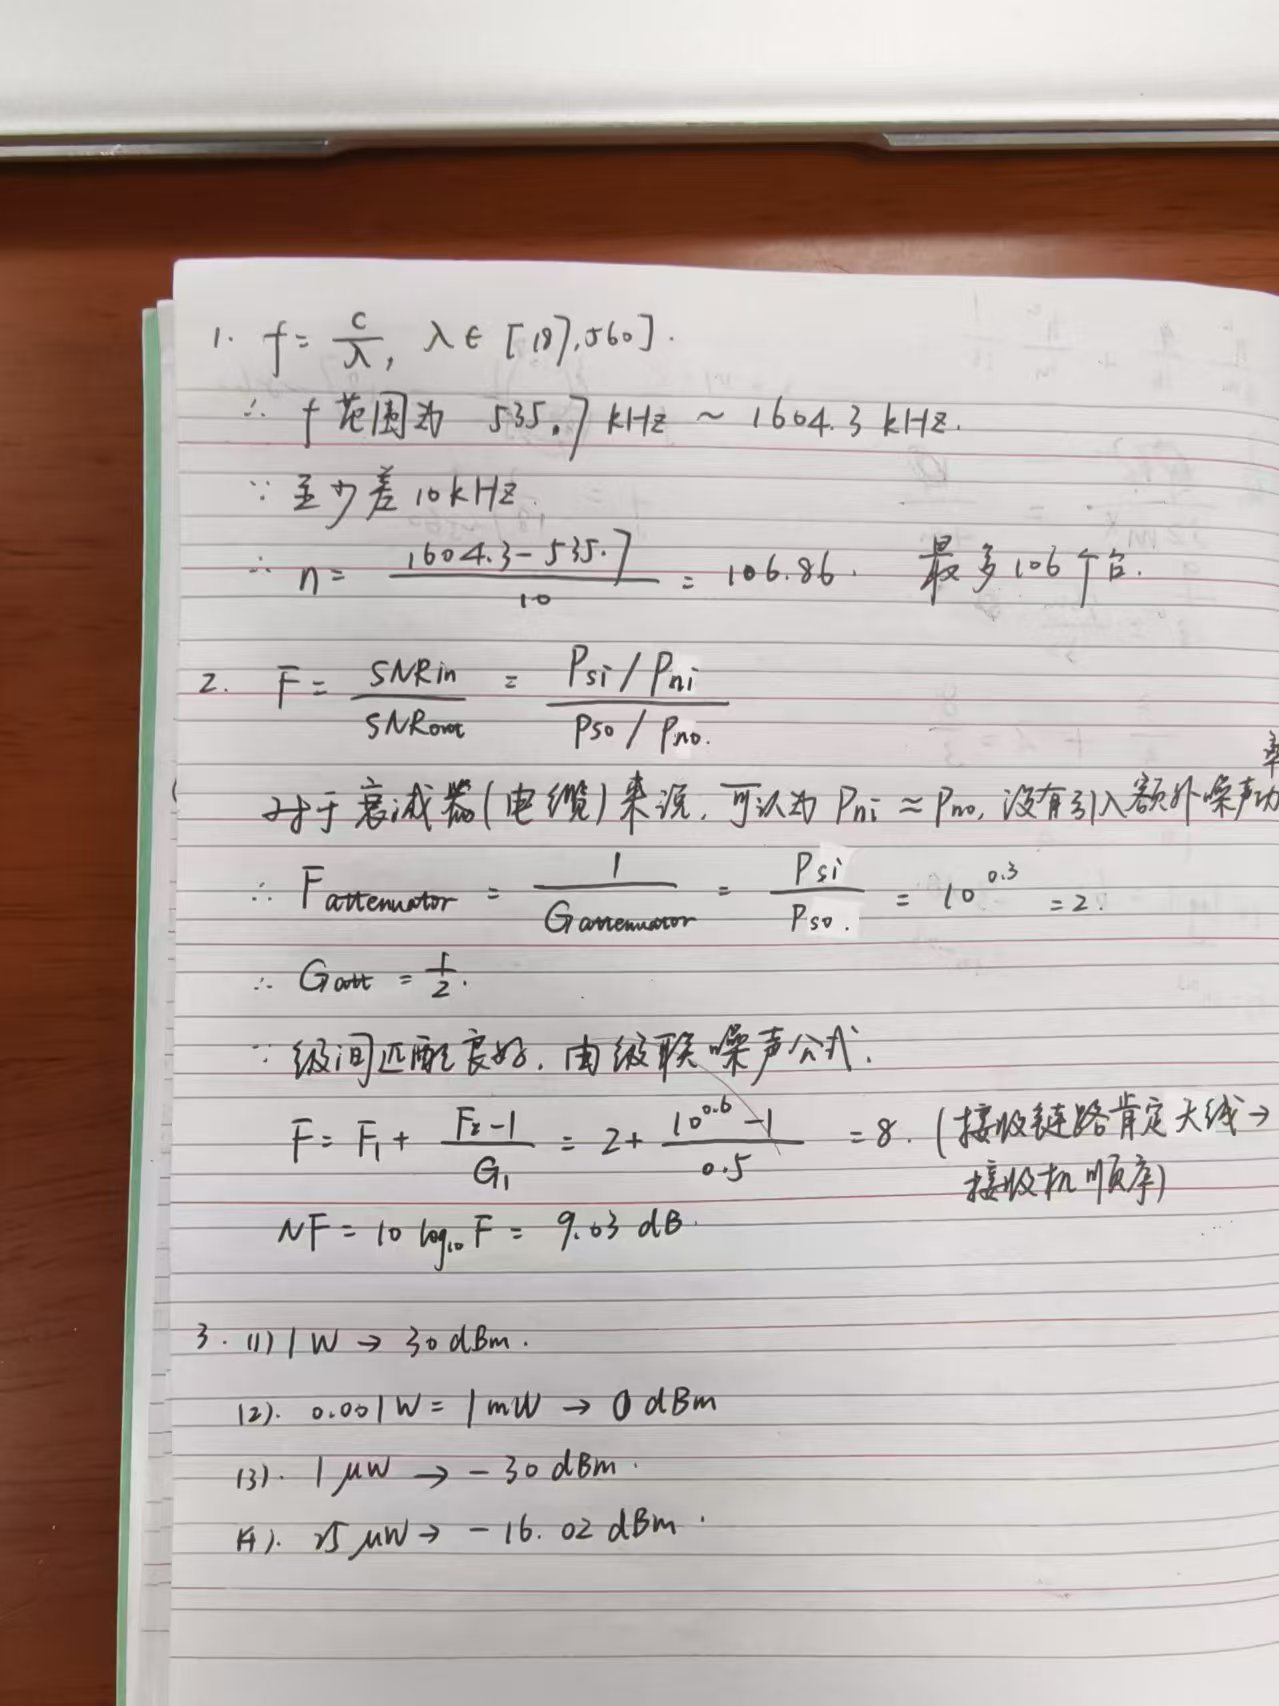 1. f = c/λ, λ ∈ [187, 560].
∴ f 范围为 535.7 kHz ~ 1604.3 kHz.
∵ 至少差 10 kHz.
∴ n = (1604.3 - 535.7)/10 = 106.86. 最多106个台.
2. F = SNRin/SNRout = (Psi / Pni)/(Pso / Pno).
对于衰减器(电缆)来说, 可认为 Pni ≈ Pno, 没有引入额外噪声功率
∴ Fattenuator = 1/Gattenuator = Psi/Pso. = 10^0.3 = 2.
∴ Gatt = 1/2.
∵ 级间匹配良好. 由级联噪声公式.
F = F1 + (F2 - 1)/G1 = 2 + (10^0.6 - 1)/0.5 = 8. (接收链路肯定天线→
接收机顺序)
NF = 10 log10 F = 9.03 dB.
3. (1) 1 W → 30 dBm.
(2). 0.001 W = 1 mW → 0 dBm
(3). 1 μW → -30 dBm.
(4). 25 μW → -16.02 dBm.